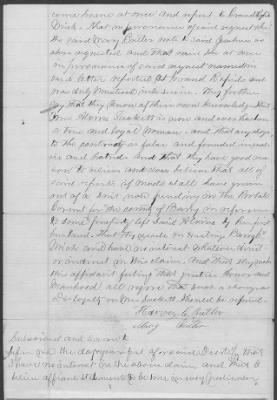 come home at once and report to Grand Rapids
Mich. That in pursuance of said request
the said Mary Butler
above requested and that same
in pursuance of said request
said letter reported at Grand Rapids and
was duly Mustered into service. They further
say that they know of their own knowledge that
Mrs Sackett is now and ever has been
a true and loyal Woman. and that any charge
to the contrary is false and founded in
and hatred. And that they have good rea
son to believe and does believe that all of
said reports if made at all have grown
out of a law suit pending in the Probate
Court for the County of Barry in reference
to some property left Mrs. by her first
husband. That they reside in Hastings Barry Co
Mich and have no interest whatever direct
or indirect in this claim. And that they make
this affidavit feeling that justice Honor and
Manhood all require that such a charge as
Disloyalty on Mrs Sackett should be refuted.
Harvey C. Butler
Mary Butler
Subscribed and sworn to
before me the day and year aforesaid
I have no interest in the above claim and that I
believe affiants statements to be true in every particular.